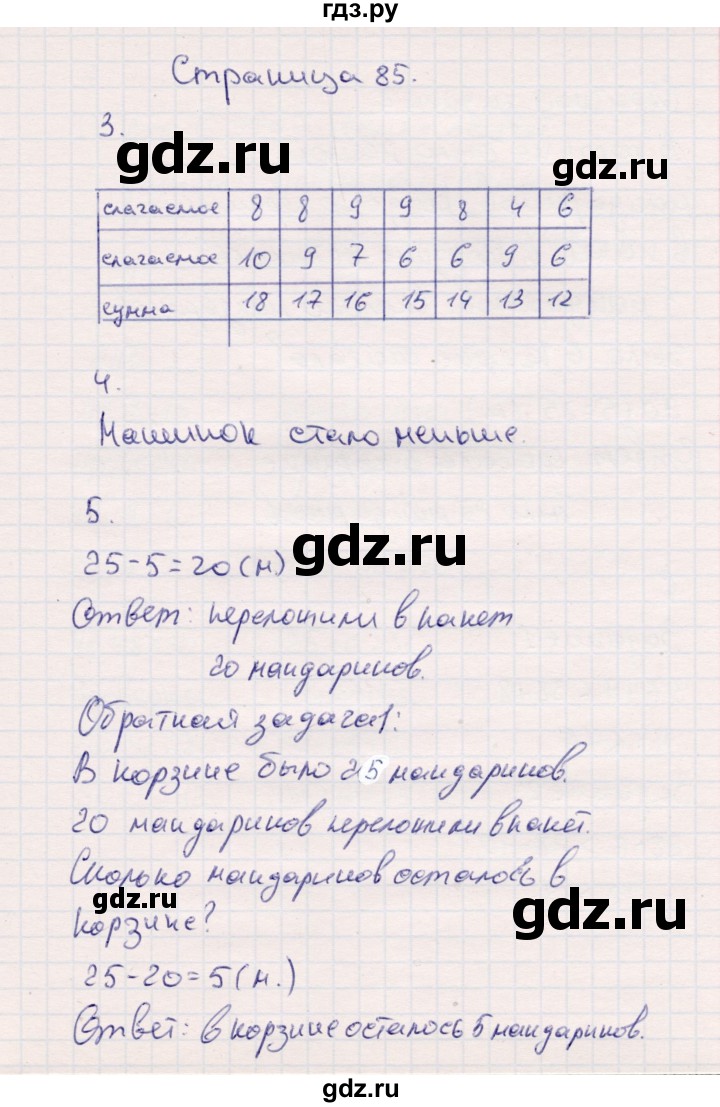 гдз.ру
Страница 85.
3.
gdz.ru
gdz.ru
слагаемое 8 8 9 9 8 4 6
слагаемое 10 9 7 6 6 9 6
сумма 18 17 16 15 14 13 12
4.
Машинок стало меньше.
5.
gdz.ru
25-5=20(м)
Ответ: переложили в пакет
20 мандаринов.
Обратная задача1:
В корзине было 25 мандаринов.
20 мандаринов переложили в пакет.
Сколько мандаринов осталось в
gdz.ru
gdz.ru
корзине?
25-20=5(м.)
Ответ: в корзине осталось 5 мандаринов.
gdz.ru